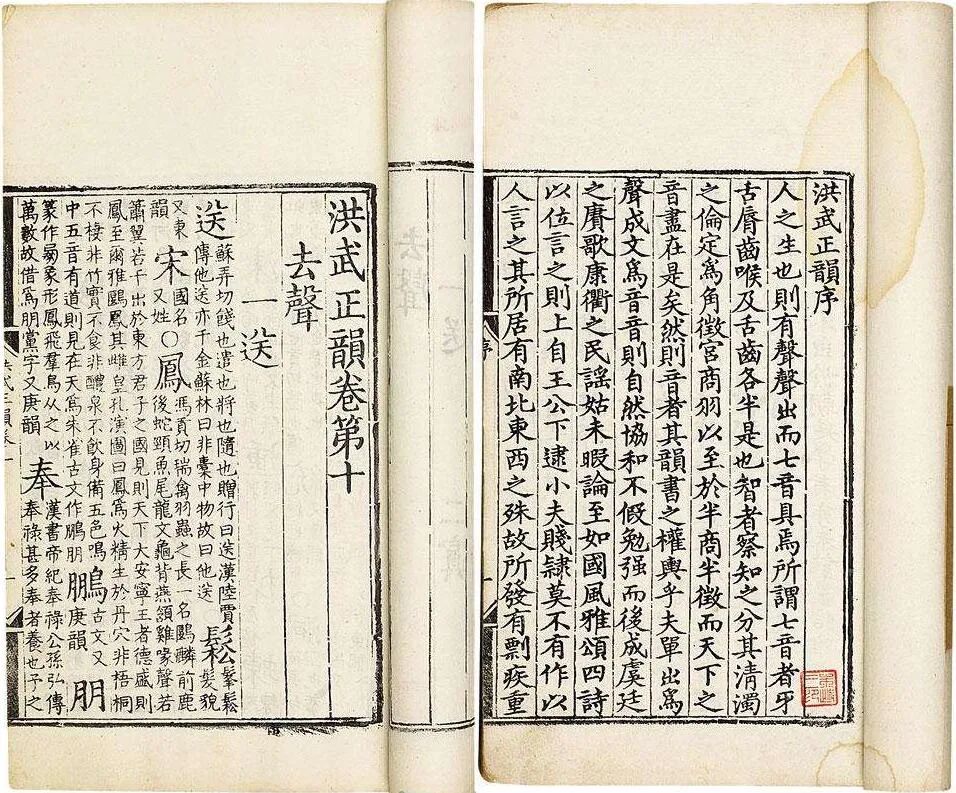 洪武正韻序
人之生也則有聲聲出而七音具焉所謂七音者牙
舌脣齒喉及舌齒各半是也智者察知之分其清濁
之倫定爲角徵宮商羽以至於半商半徵而天下之
音盡在是矣然則音者其韻書之權輿乎夫單出爲
聲成文爲音音則自然協和不假勉强而後成虞廷
之賡歌康衢之民謡姑未暇論至如國風雅頌四詩
以位言之則上自王公下逮小夫賤隸莫不有作以
人言之其所居有南北東西之殊故所發有剽疾重
洪武正韻卷第十
去聲
一送
送蘇弄切餞也遣也將也隨也贈行曰送漢陸賈傳他送亦千金蘇林曰非橐中物故曰他送鬆鬆鬆髮貌
又東韻宋國名又姓○鳳馮貢切瑞禽羽蟲之長一名鶠麟前鹿後蛇頸魚尾龍文龜背燕頷雞喙聲若
簫翼若干出於東方君子之國見則天下大安寧王者德盛則
鳳至爾雅鶠鳳其雌皇孔演圖曰鳳爲火精生於丹穴非梧桐
不棲非竹實不食非醴泉不飲身備五色鳴中五音有道則見在天爲朱雀古文作鵬朋鵬古文又庚韻朋
篆作象形鳳飛羣鳥從之以萬數故借爲朋黨字又庚韻奉漢書帝紀奉祿公孫弘傳奉祿甚多奉者養也子之